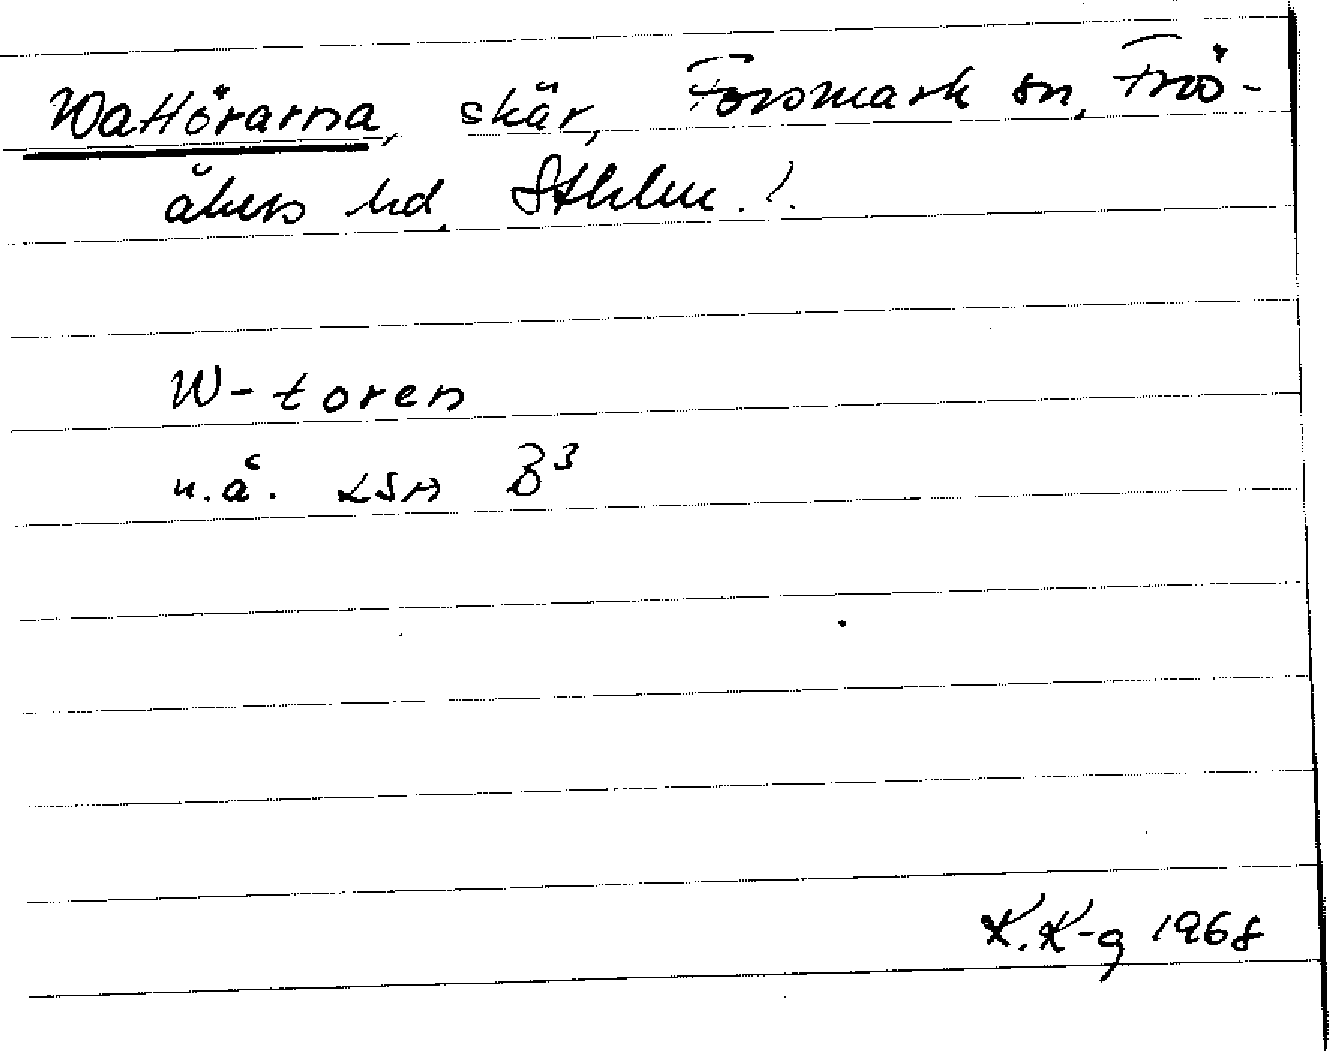 Wattörarna, skär, Forsmark sn, Frös-
åkers hd, Sthlm l.
W-toren
u.å. LSA B³
K.K-g 1968